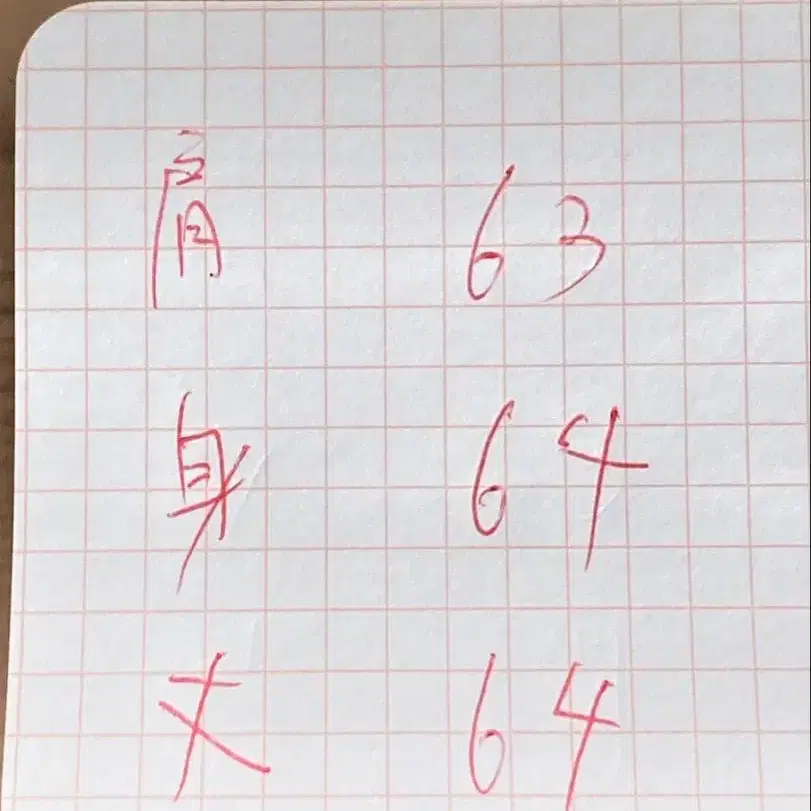 肩 63
身 64
丈 64